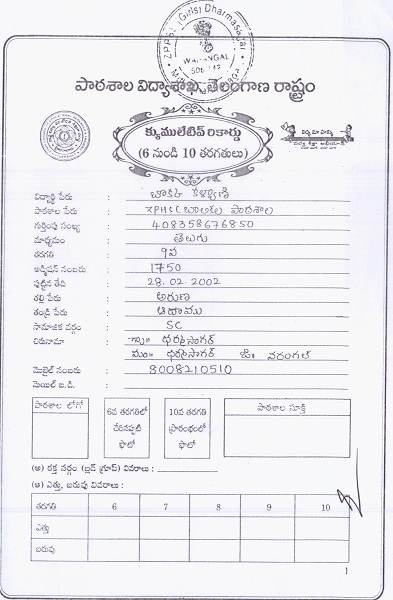 ZPPSS (Girls) Dharmasagar
WARANGAL
506142
పాఠశాల విద్యాశాఖ, తెలంగాణ రాష్ట్రం
క్యుములేటివ్ రికార్డు
(6 నుండి 10 తరగతులు)
విద్యార్థి పేరు :
పాఠశాల పేరు : ZPHSS బాలికల పాఠశాల
గుర్తింపు సంఖ్య : 408358676850
మాధ్యమం : తెలుగు
తరగతి : 9వ
అడ్మిషన్ నంబరు : 1750
పుట్టిన తేది : 28.02.2002
తల్లి పేరు : అరుణ
తండ్రి పేరు :
సామాజిక వర్గం : SC
చిరునామా : గ్రా॥ ధర్మసాగర్
మం॥ ధర్మసాగర్ జి॥ వరంగల్
మొబైల్ నంబరు : 8008210510
మెయిల్ ఐ.డి. :
పాఠశాల లోగో
6వ తరగతిలో చేరినప్పటి ఫొటో
10వ తరగతి ప్రారంభంలో ఫొటో
పాఠశాల సూక్తి
(అ) రక్త వర్గం (బ్లడ్ గ్రూప్) వివరాలు :
(ఆ) ఎత్తు, బరువు వివరాలు :
తరగతి 6 7 8 9 10
ఎత్తు
బరువు
1